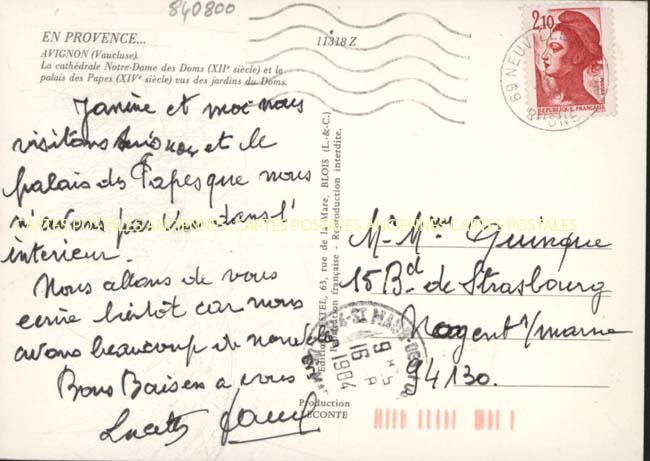 840800
EN PROVENCE...
AVIGNON (Vaucluse).
La cathédrale Notre-Dame des Doms (XIIe siècle) et le
palais des Papes (XIVe siècle) vus des jardins du Doms.
11318 Z
2,10
REPUBLIQUE FRANÇAISE
69 NEUV
RHONE
Janine et moi nous
visitons Avignon et le
palais des Papes que nous
n'avons pas vu dans l'
interieur.
Nous allons de vous
ecrire bientôt car nous
avons beaucoup de
Bons Baisers a vous
Lucette
M. Mme Guinque
15 Bd de Strasbourg
Nogent s/marne
94130.
63, rue de la Mare, BLOIS (L.-&-C.)
française - Reproduction interdite.
ST MAUR
16
1984
Production
LECONTE
CARTES POSTALES ANCIENNES CARTES POSTALES